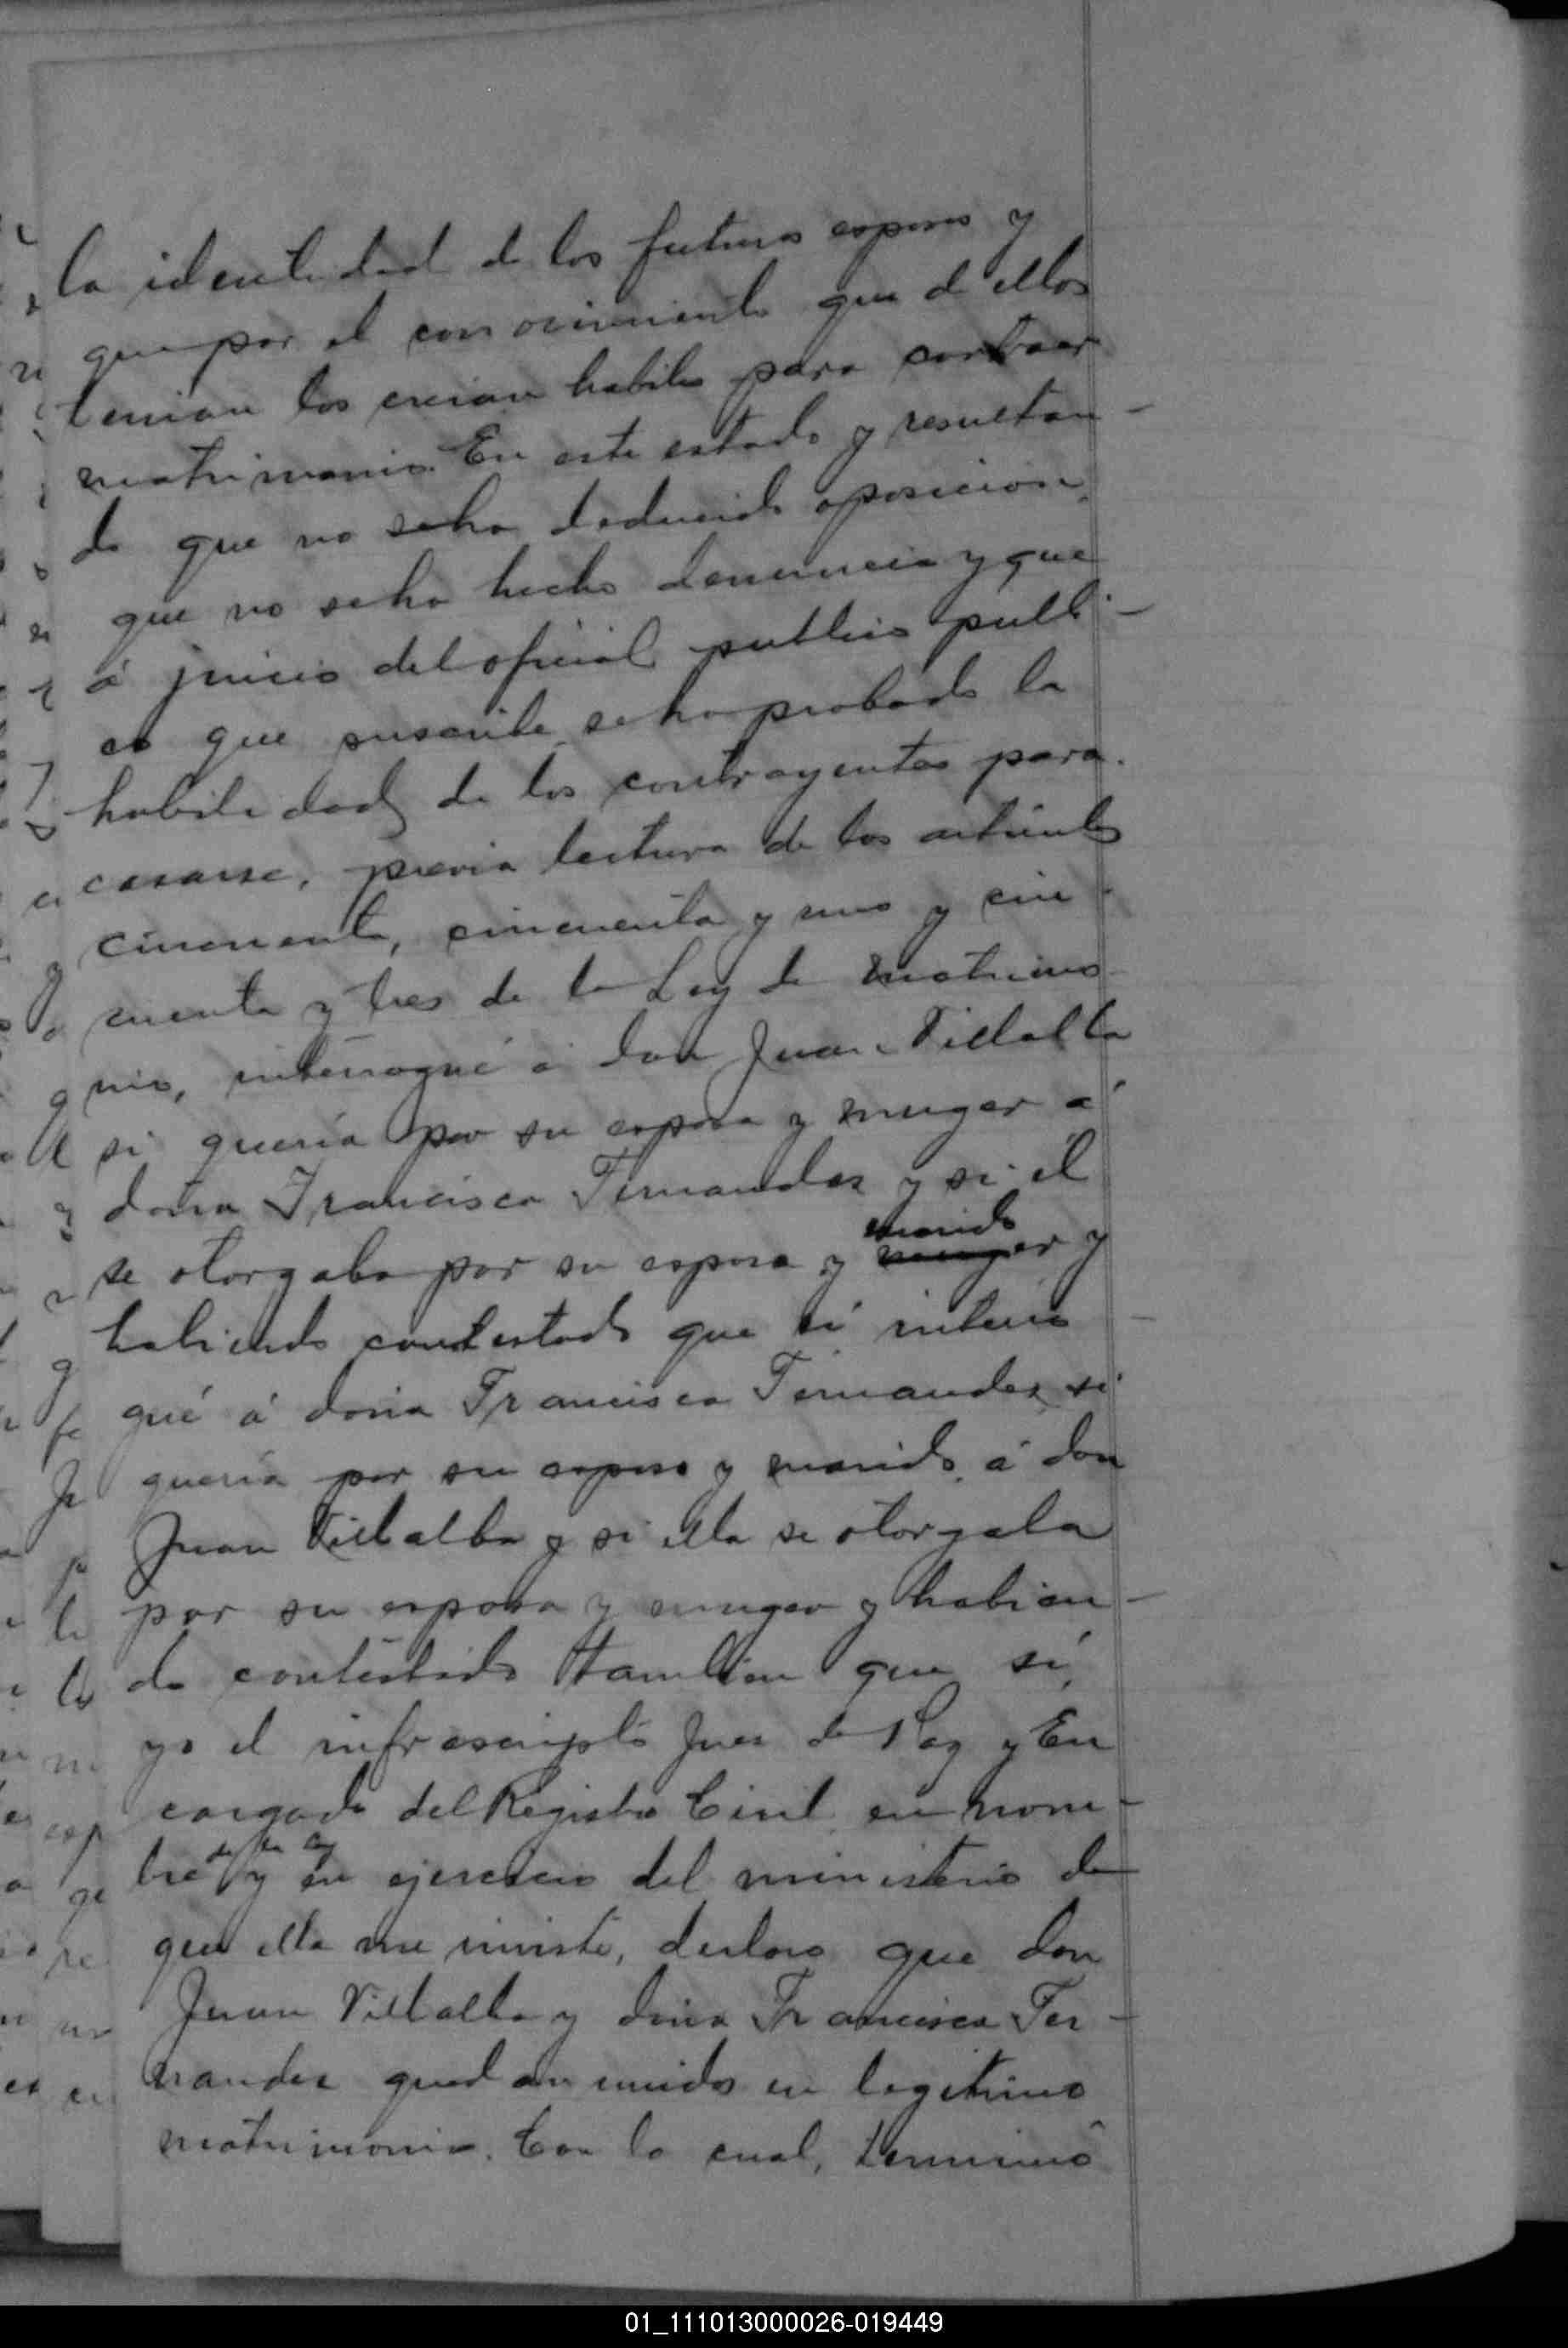 la identidad de los futuros esposos y
que por el conocimiento que de ellos
tenian los creian habiles para contraer
matrimonio. En este estado y resultan-
do que no se ha deducido oposicion,
que no se ha hecho denuncia y que
á juicio del oficial publico públi-
co que suscribe se ha probado la
habilidad de los contrayentes para
casarse, previa lectura de los articulos
cincuenta, cincuenta y uno y cin-
cuenta y tres de la Ley de Matrimo-
nio, interrogué á don Juan Villalba
si quería por su esposa y muger á
doña Francisca Fernandez y si él
se otorgaba por su esposo y muger marido y
habiendo contestado que sí interro
gué á doña Francisca Fernandez si
quería por su esposo y marido á don
Juan Villalba y si ella se otorgaba
por su esposa y muger y habien-
do contestado tambien que sí,
yo el infrascripto Juez de Paz y En
cargado del Registro Civil en nom-
bre de la ley y en ejercicio del ministerio de
que ella me inviste, declaro que don
Juan Villalba y doña Francisca Fer-
nandez quedan unidos en legitimo
matrimonio. Con lo cual, terminó
01_111013000026-019449